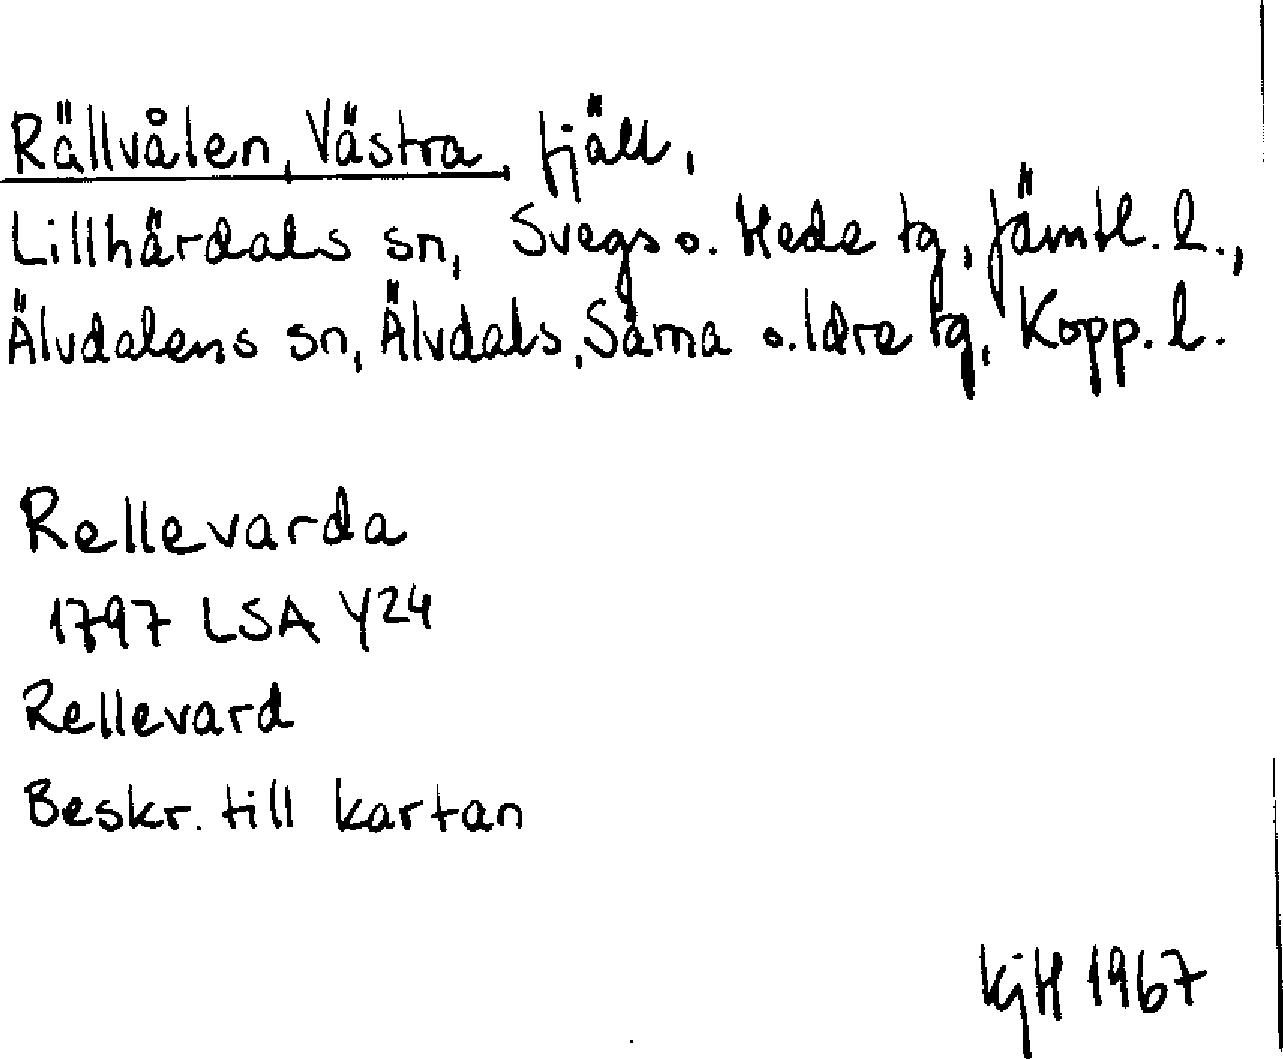 Rällvålen, Västra, fjäll,
Lillhärdals sn, Svegs o. Hede tg, Jämtl. l.,
Älvdalens sn, Älvdals, Särna o. Idre tg, Kopp. l.
Rellevarda
1797 LSA Y24
Rellevard
Beskr. till kartan
KjH 1967